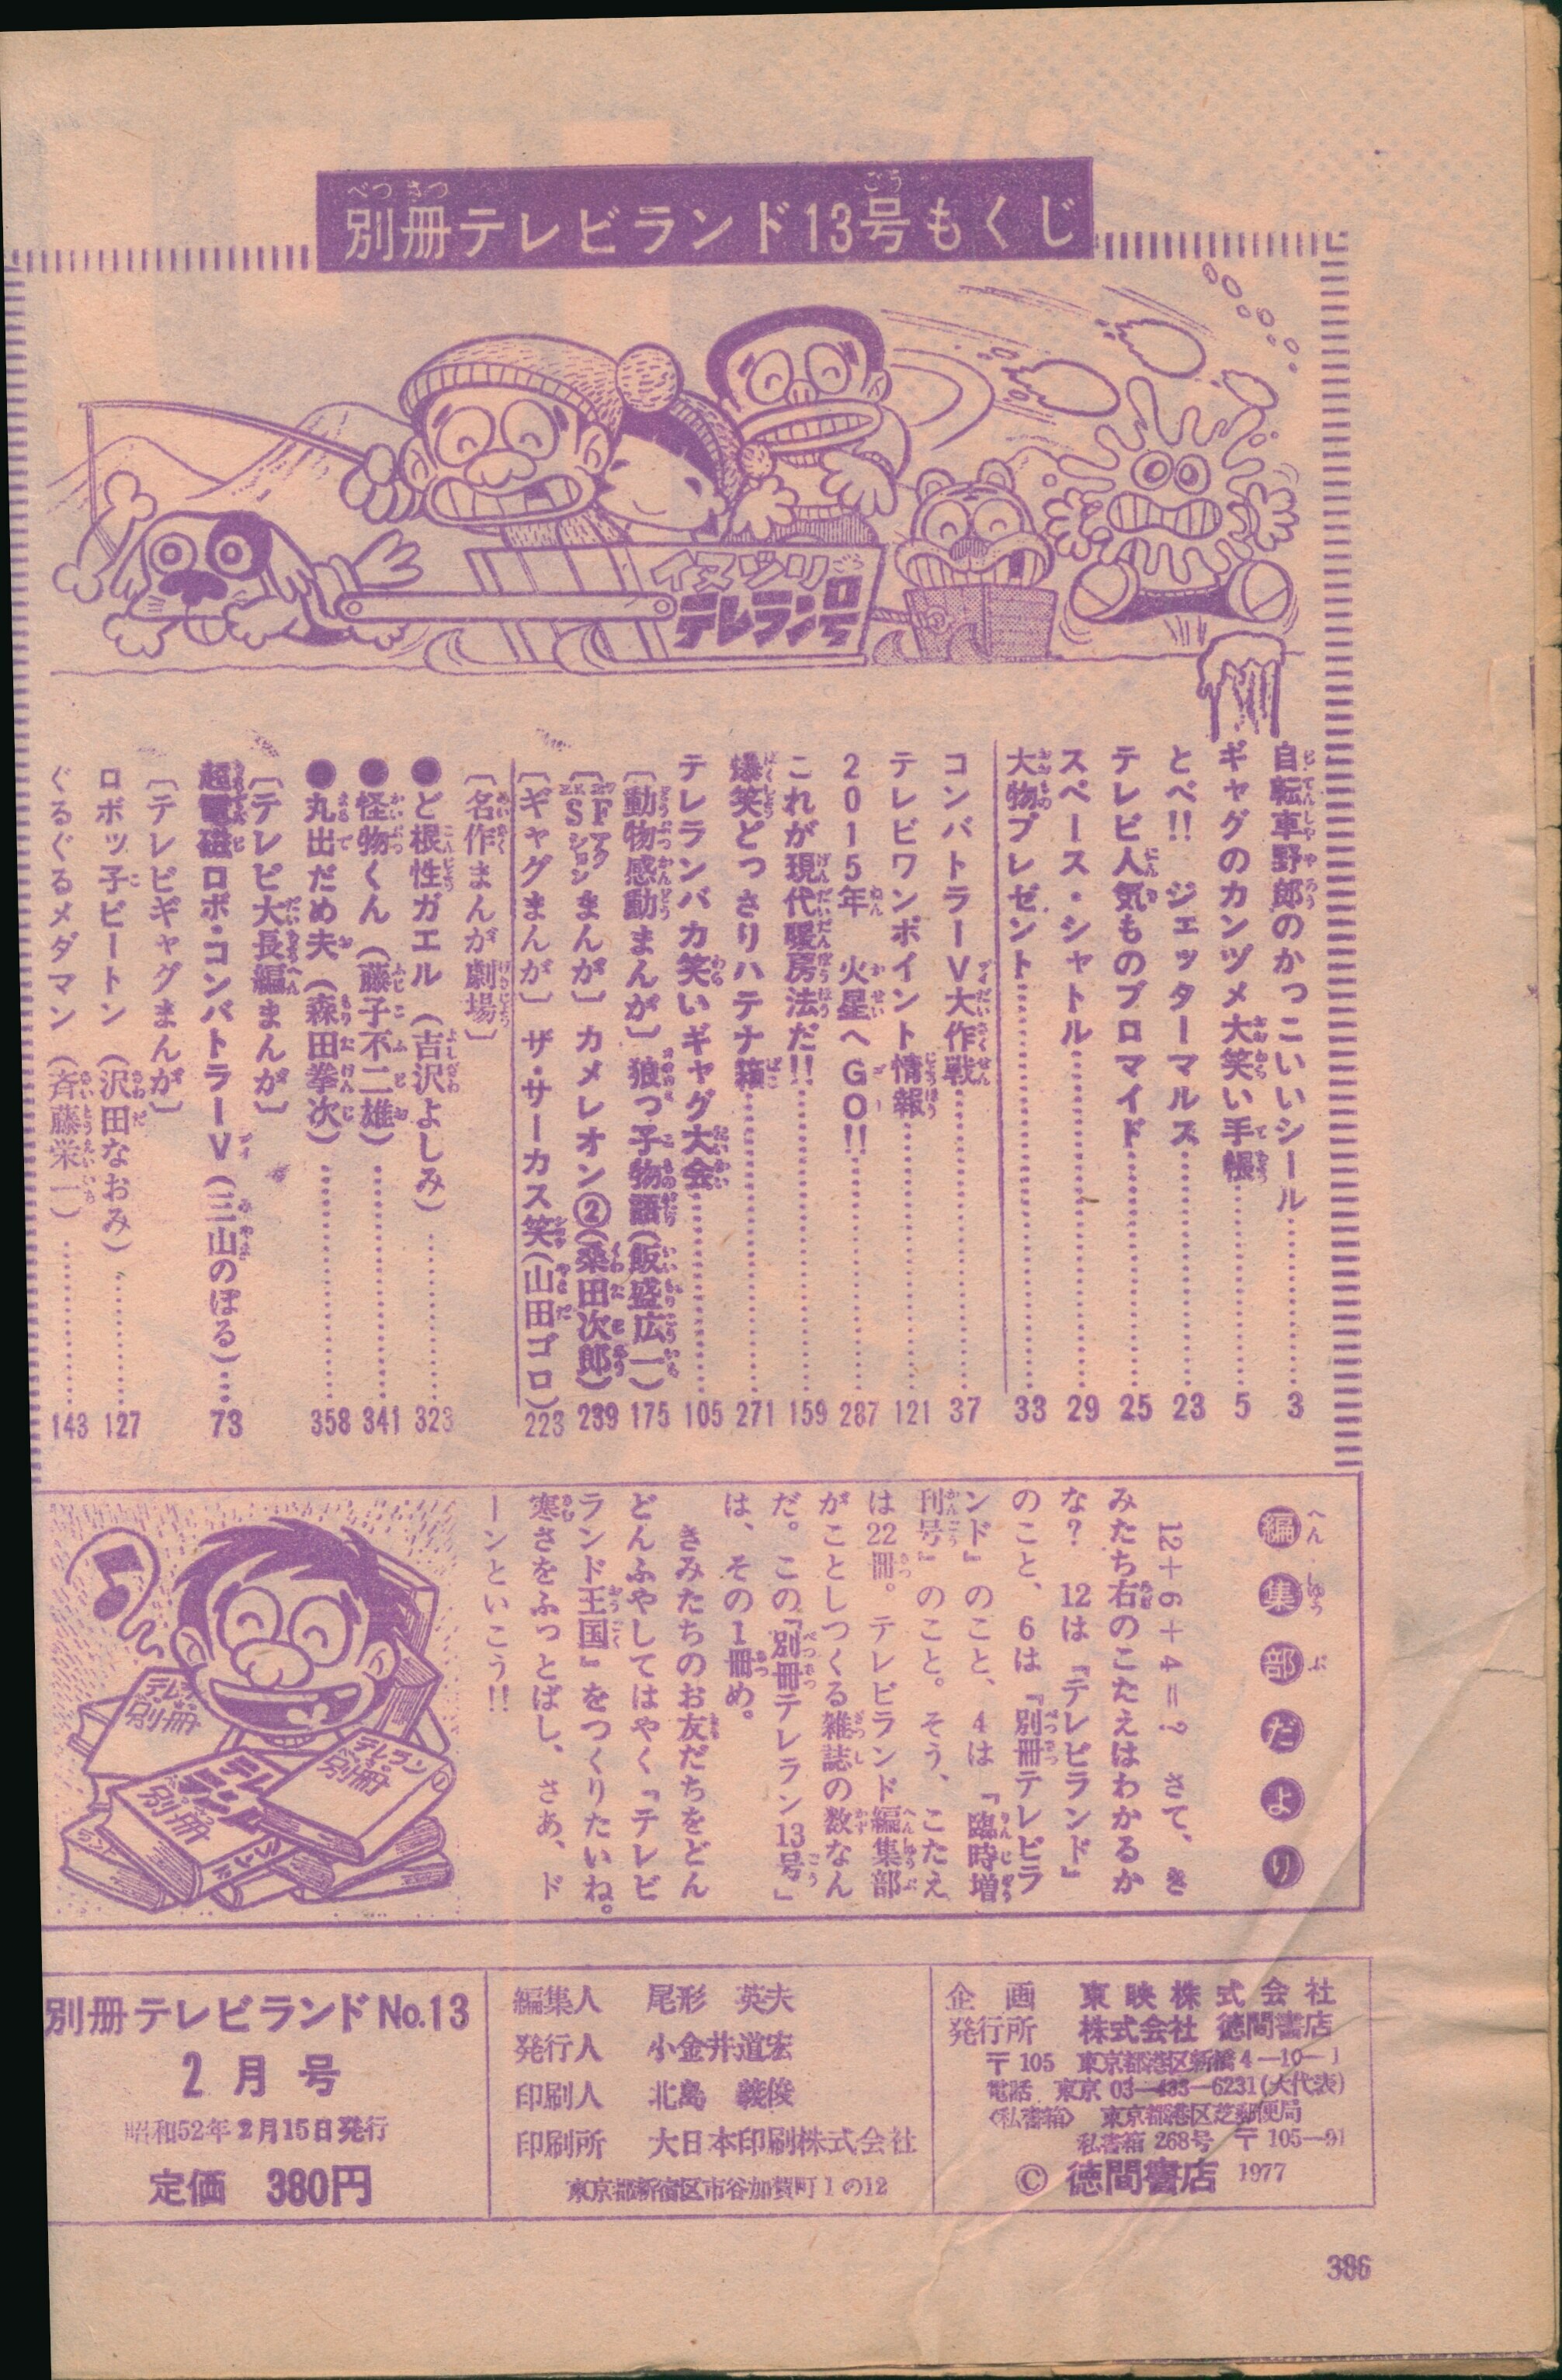 別冊テレビランド13号もくじ
イヌゾリ
テレラン号
自転車野郎のかっこいいシール……3
ギャグのカンヅメ大笑い手帳……5
とべ!! ジェッターマルス……23
テレビ人気ものブロマイド……25
スペース・シャトル……29
大物プレゼント……33
コンバトラーV大作戦……37
テレビワンポイント情報……121
2015年 火星へGO!!……287
これが現代暖房法だ!!……159
爆笑どっさりハテナ箱……271
テレランバカ笑いギャグ大会……105
〔動物感動まんが〕狼っ子物語(飯盛広一)……175
〔SFアクションまんが〕カメレオン②(桑田次郎)……239
〔ギャグまんが〕ザ・サーカス笑(山田ゴロ)……223
〔名作まんが劇場〕
●ど根性ガエル(吉沢よしみ)……323
●怪物くん(藤子不二雄)……341
●丸出だめ夫(森田拳次)……358
〔テレビ大長編まんが〕
超電磁ロボ・コンバトラーV(三山のぼる)……73
〔テレビギャグまんが〕
ロボッ子ビートン(沢田なおみ)……127
ぐるぐるメダマン(斉藤栄一)……143
編集部だより
12+6+4=? さて、き
みたち右のこたえはわかるか
な? 12は『テレビランド』
のこと、6は『別冊テレビラ
ンド』のこと、4は『臨時増
刊号』のこと。そう、こたえ
は22冊。テレビランド編集部
がことしつくる雑誌の数なん
だ。この『別冊テレラン13号』
は、その1冊め。
きみたちのお友だちをどん
どんふやしてはやく『テレビ
ランド王国』をつくりたいね。
寒さをふっとばし、さあ、ド
ーンといこう!!
テレラン
別冊
テレラン
別冊
別冊
別冊テレビランドNo.13
2月号
昭和52年2月15日発行
定価 380円
編集人 尾形 英夫
発行人 小金井道宏
印刷人 北島 義俊
印刷所 大日本印刷株式会社
東京都新宿区市谷加賀町1の12
企画 東映株式会社
発行所 株式会社 徳間書店
〒105 東京都港区新橋4—10—1
電話 東京 03—433—6231(大代表)
〈私書箱〉 東京都港区芝郵便局
私書箱 268号 〒105—91
© 徳間書店 1977
386